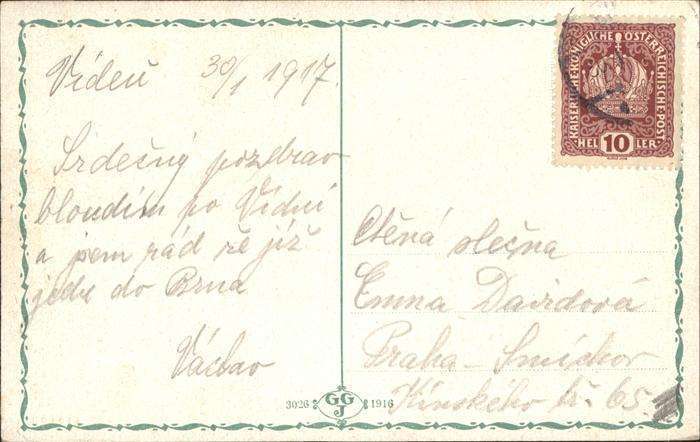 Vídeň 30/1 1917.
Srdečný pozdrav
bloudím po Vídni
a jsem rád že již
jedu do Brna
Václav
KAISERLICHE KÖNIGLICHE ÖSTERREICHISCHE POST
HELLER
10
Ctěná slečna
Emma Davidová
Praha - Smíchov
Kinského tř. 65.
3026 GGJ 1916